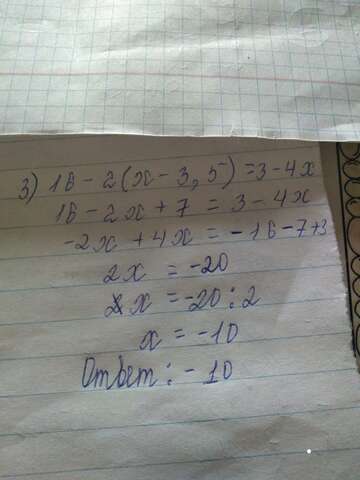 3) 16 - 2(x - 3,5) = 3 - 4x
16 - 2x + 7 = 3 - 4x
-2x + 4x = -16 - 7 + 3
2x = -20
x = -20 : 2
x = -10
Ответ: - 10